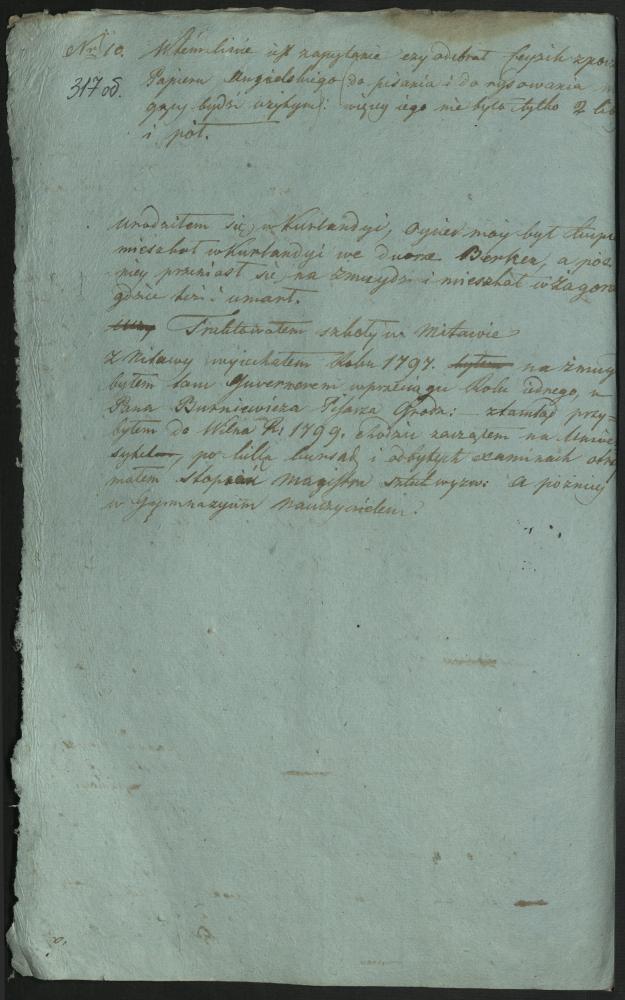 Nr 10. W tem liscie jest zapytanie czy odebrał feyzik
317 od. Papieru Angielskiego (do pisania i do rysowania
gący bydź użytym): więcy iego nie było tylko 2
i pół.
urodziłem się w Kurlandyi, oyciec moy był
mieszkał w Kurlandyi we dworze Berken, a
niey przeniosł się na Zmuydz i mieszkał w Zagor
gdzie też i umarł.
Traktowałem szkoły w Mitawie
z Mitawy wyiechałem Roku 1797. byłem na Zmuy
byłem tam Guwernerem wprzeciągu Roku iednego, u
Pana Burniewicza Pisarza Grodz: ztamtąd przy=
byłem do Wilna R. 1799. chodzić zacząłem na
po kilku i odbytych examinach
małem Stopień magistra sztuk wyzw: a pozniey
w Gymnazyum nauczycielem.